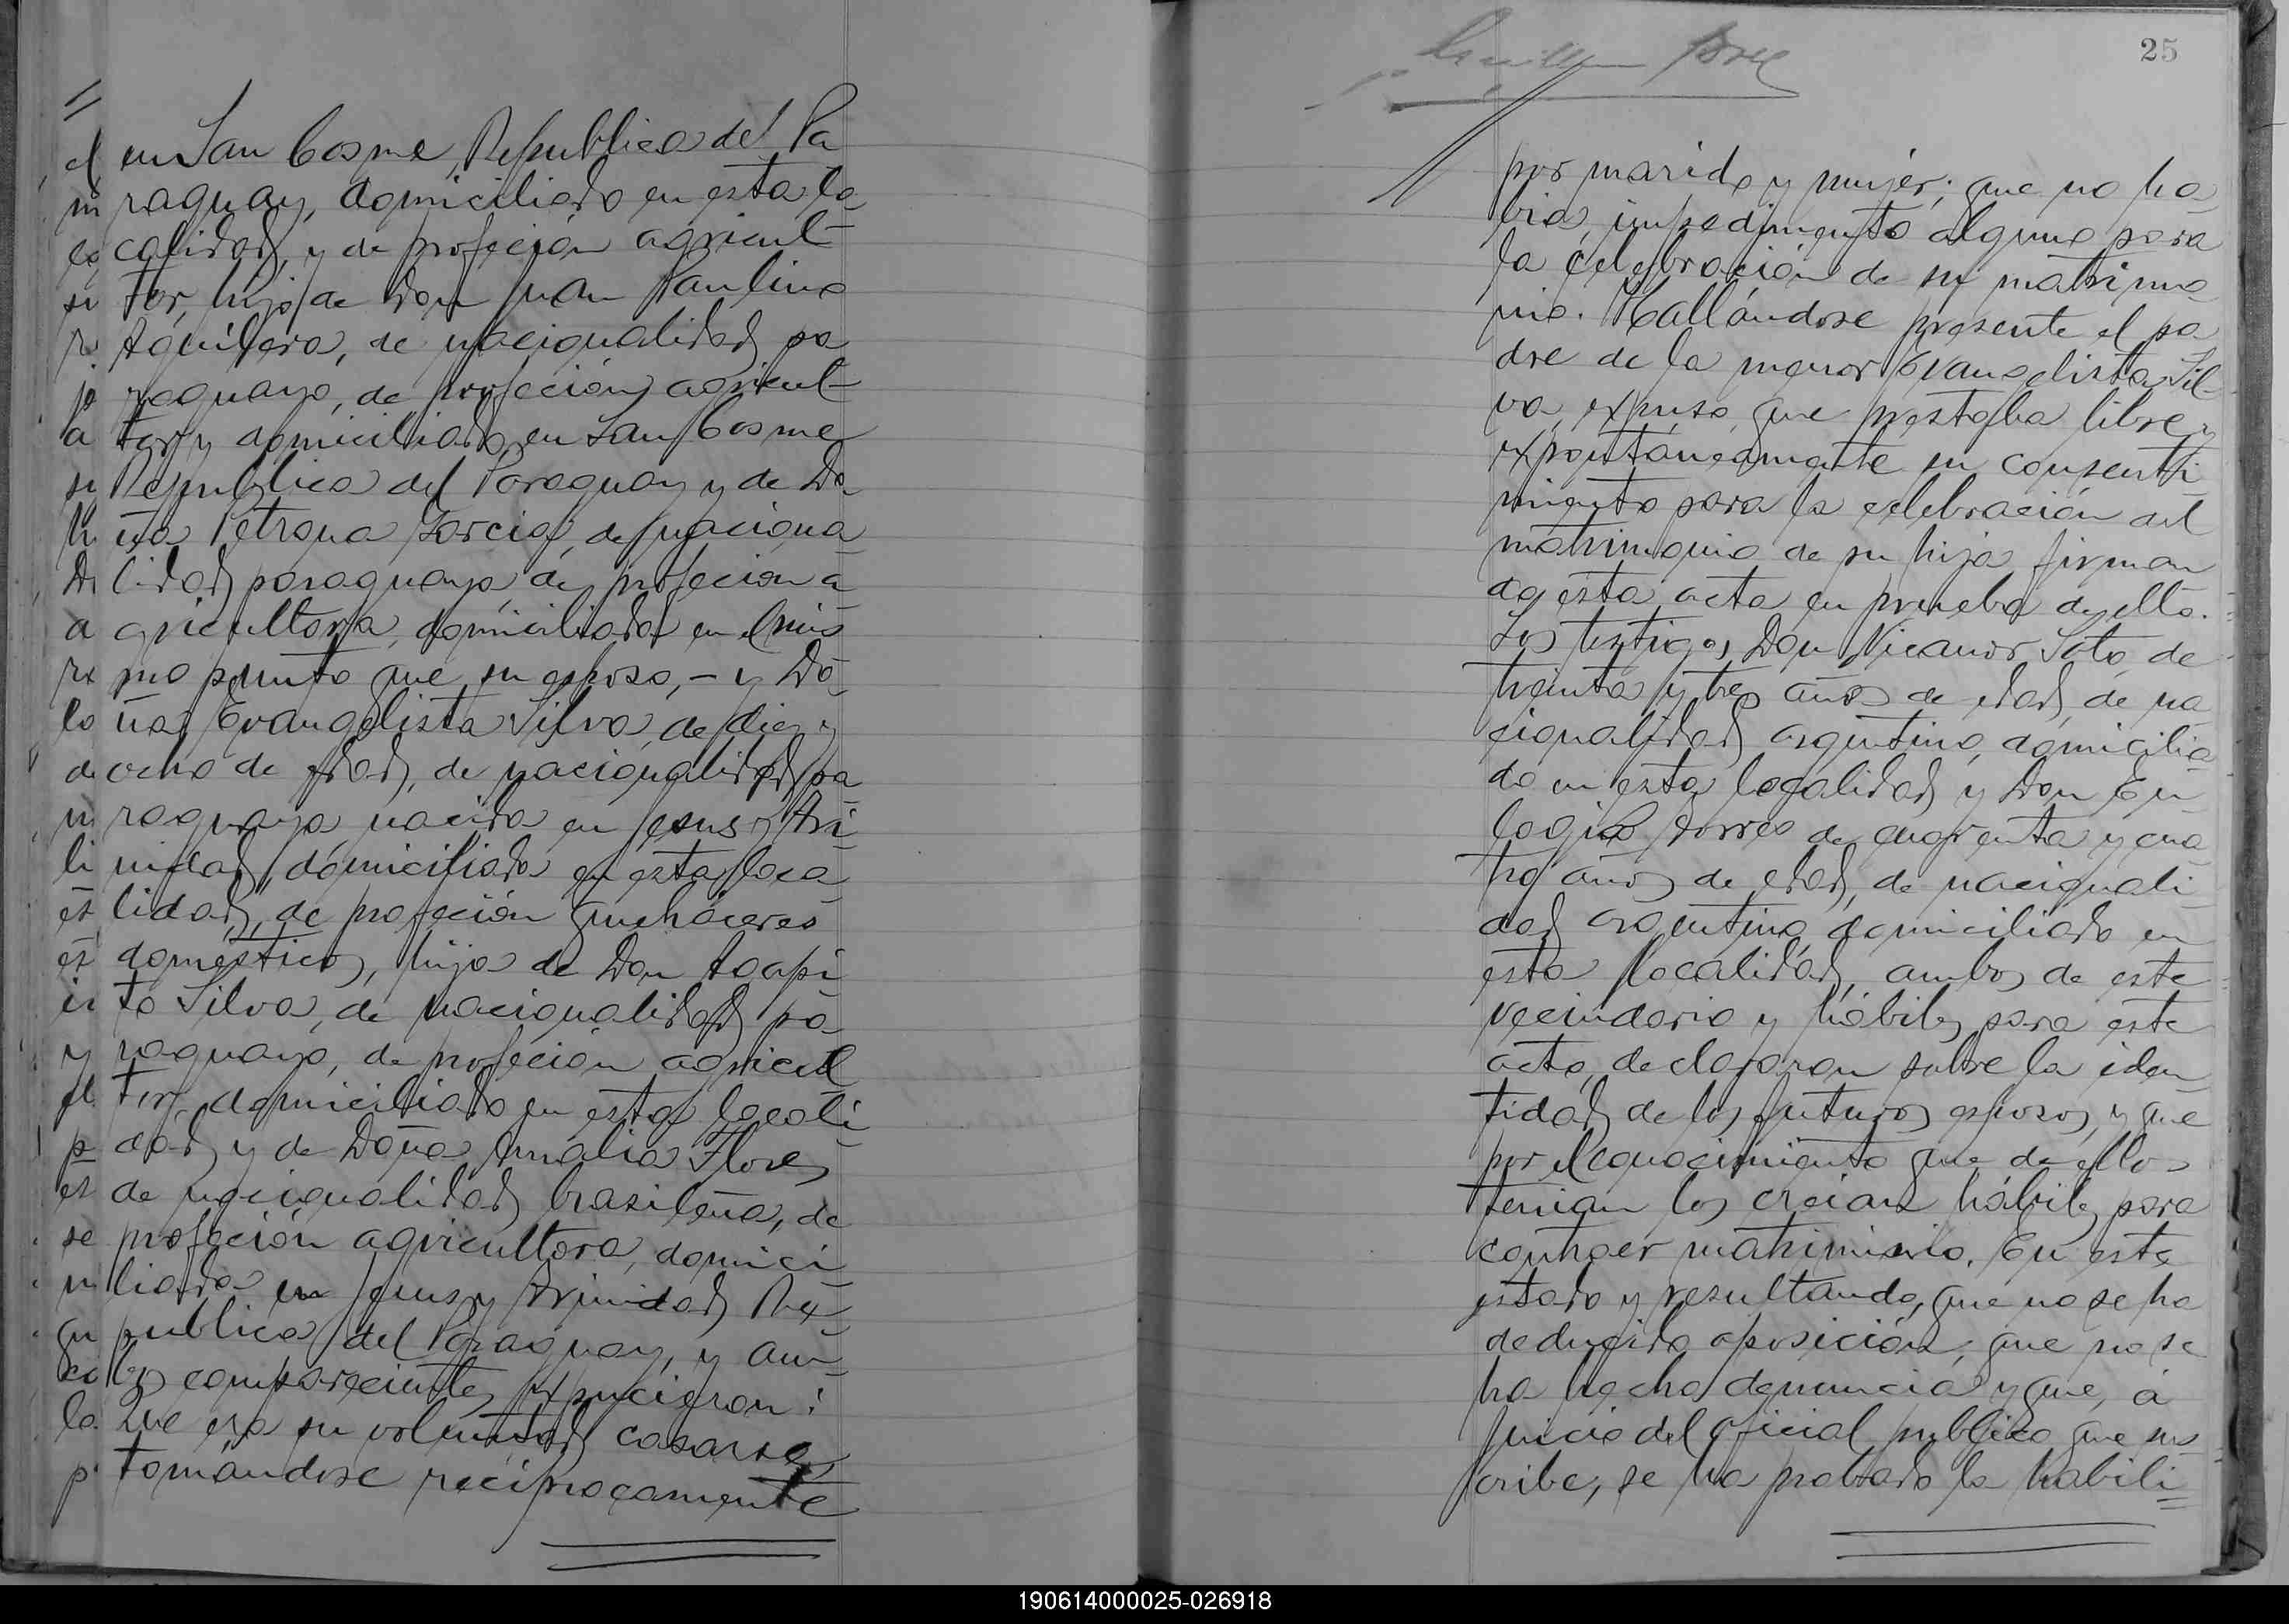 en San Cosme, Republica del Pa
raguay, domiciliado en esta lo-
calidad, y de profeción agricul-
tor, hijo de Don Juan Paulino
Aguilera, de nacionalidad pa
raguayo, de profeción agricul-
tor y domiciliado en San Cosme
Republica del Paraguay y de Do-
ña Petrona Garcia, de naciona-
lidad paraguaya, de profecion a-
gricultora, domiciliada en el mis
mo punto que su esposo, - y Do-
ña Evangelista Silva, de diez y
ocho de edad, de nacionalidad pa-
raguaya, nacida en Jesus y Tri-
nidad, domiciliada en esta loca-
lidad, de profeción quehaceres
domésticos, hija de Don Agapi-
to Silva, de nacionalidad pa-
raguayo, de profeción agricul
tor, domiciliado en esta locali-
dad y de Doña Amalia Flores
de nacionalidad brasileña, de
profeción agricultora, domici-
liada en Jesus y Trinidad Re-
publica del Paraguay, y am-
bos comparecientes expucieron:
Que era su voluntad casarse,
tomándose reciprocamente
25
por marido y mujer; que no ha-
bia impedimento alguno para
la celebración de su matrimo-
nio. Hallándose presente el pa-
dre de la menor Evangelista Sil-
va, expuso que prestaba libre y
expontáneamente su consenti-
miento para la celebración del
matrimonio de su hija firman-
do esta acta en prueba de ello.
Los testigos Don Nicanor Soto, de
treinta y tres años de edad, de na-
cionalidad argentino, domicilia-
do en esta localidad y Don Eu-
logio Torres de cuarenta y cua-
tro años de edad, de nacionali-
dad argentino, domiciliado en
esta localidad, ambos de este
vecindario y hábiles para este
acto, declararon sobre la iden-
tidad de los futuros esposos, y que
por el conocimiento que de ellos
tenian los creian hábiles para
contraer matrimonio. En este
estado y resultando, que no se ha
deducido oposición, que no se
ha hecho denuncia y que, á
juicio del oficial publico que sus
cribe, se ha probado la habili-
190614000025-026918